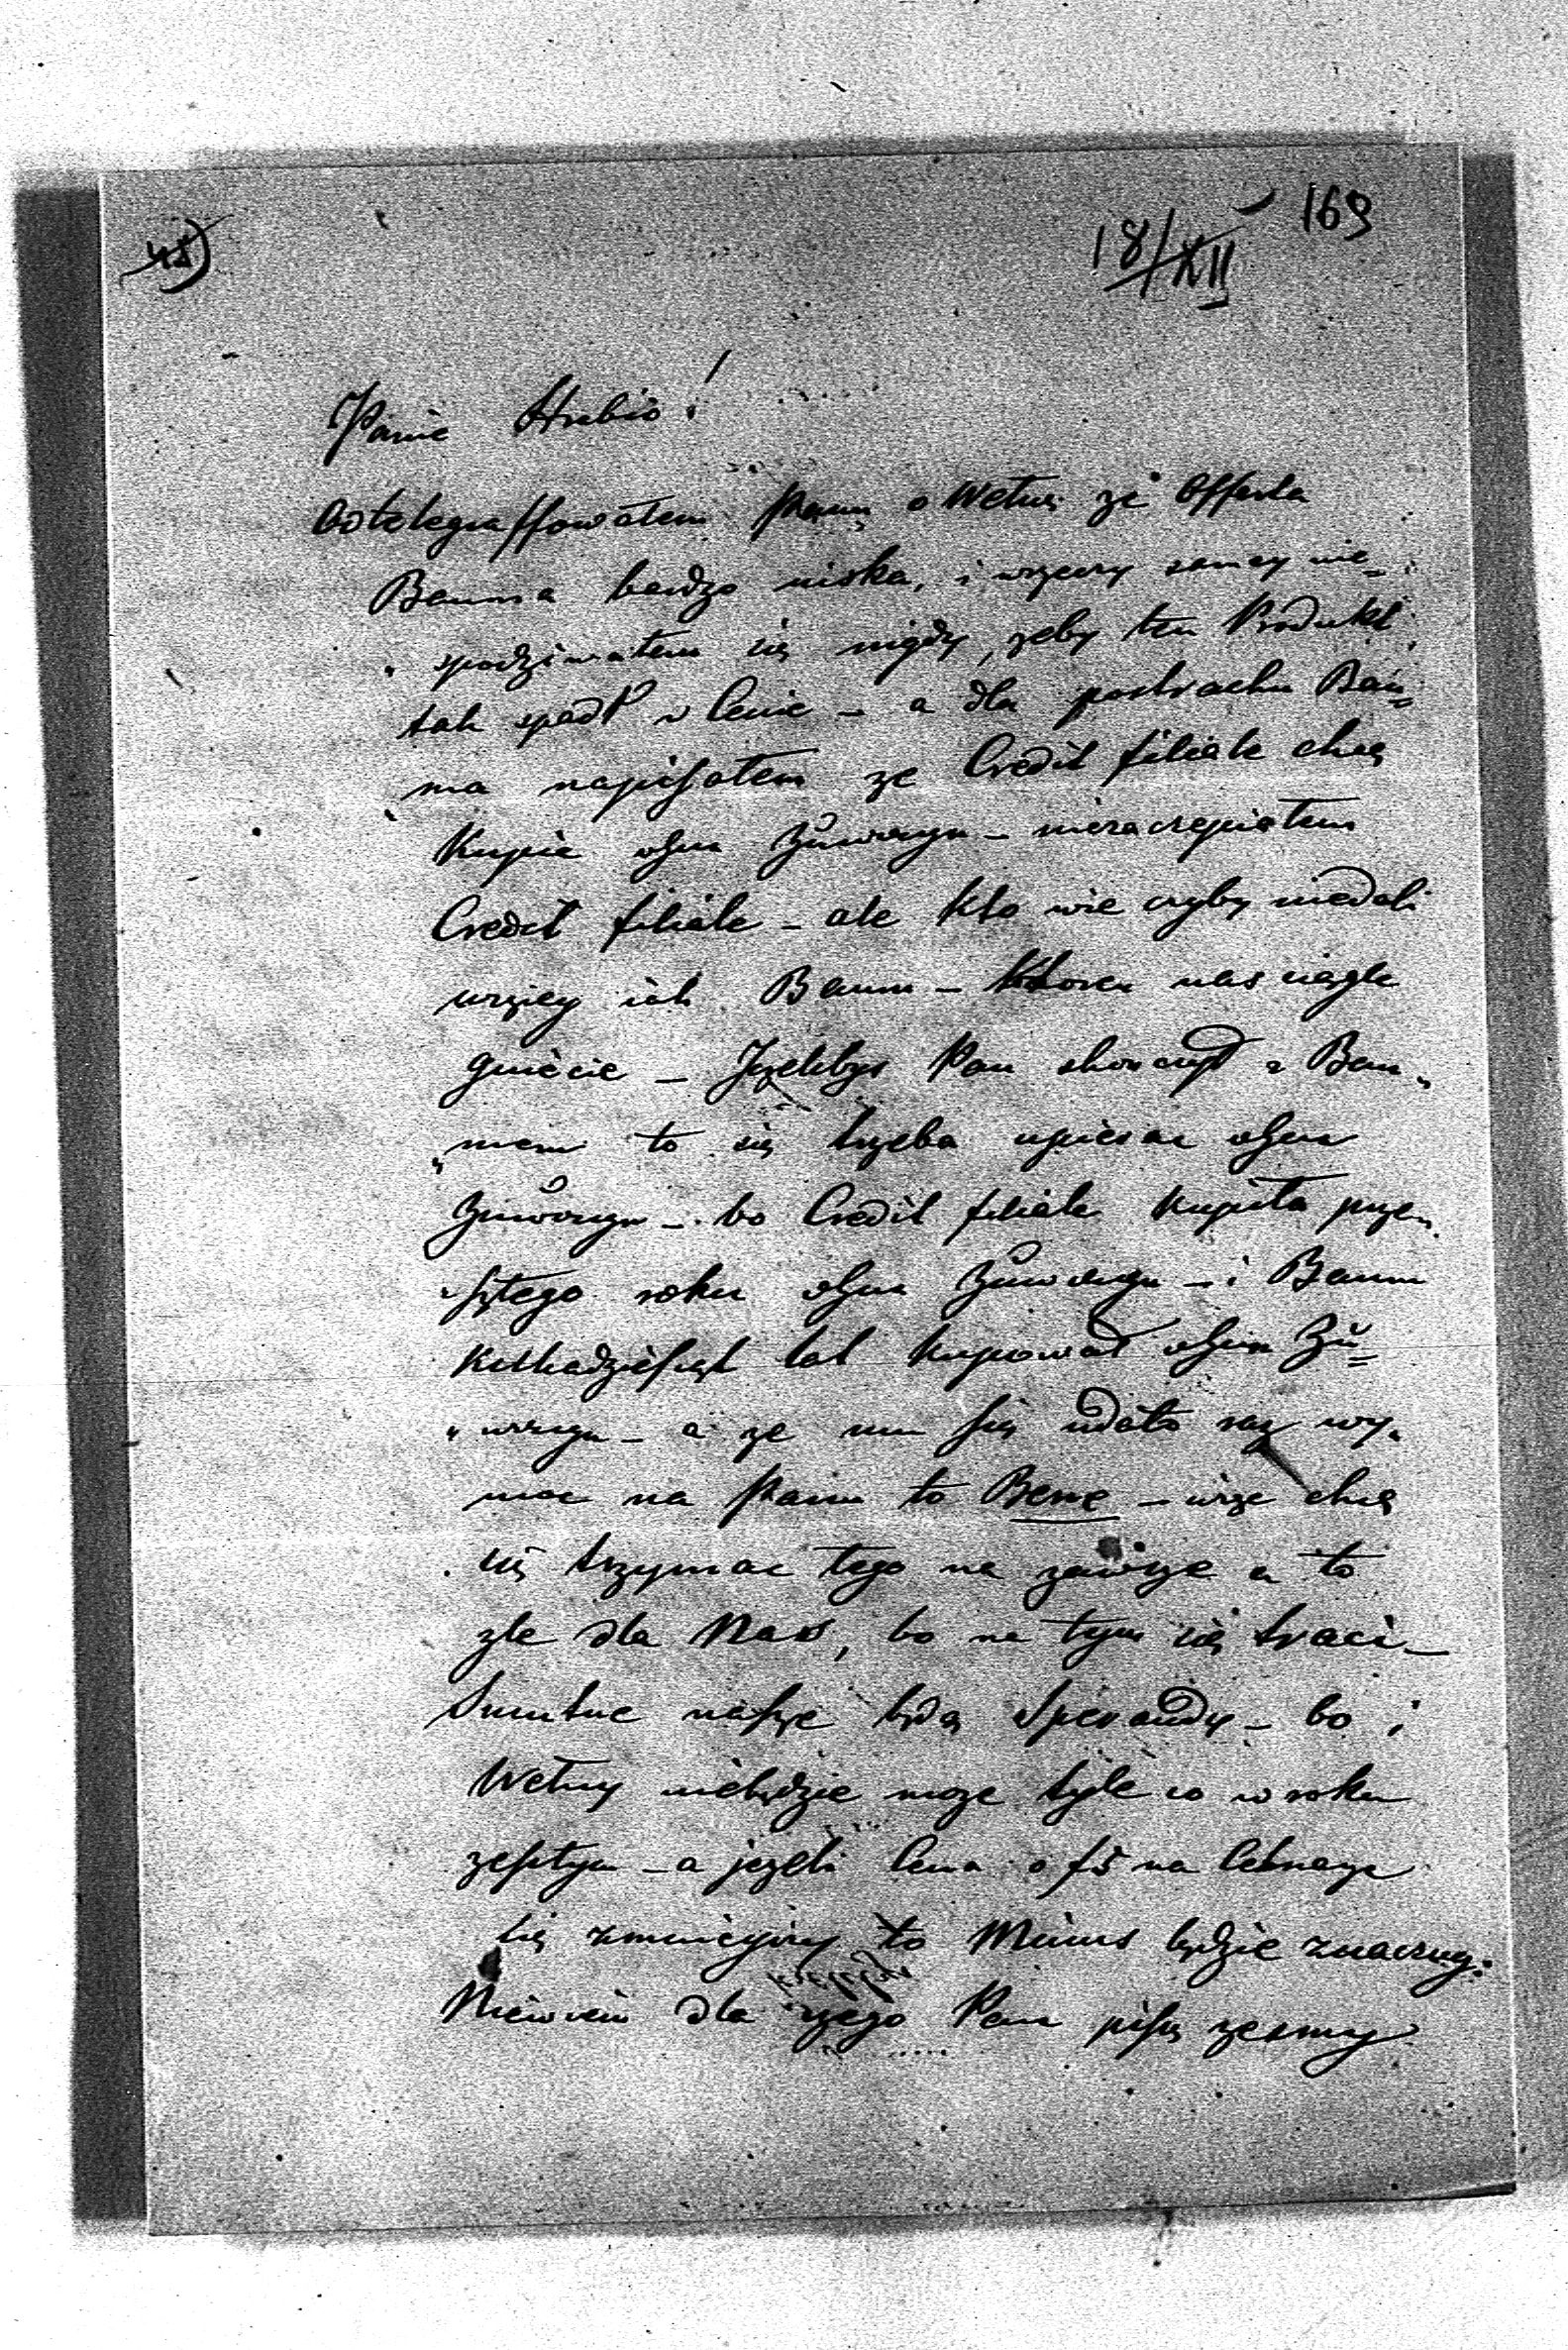 169
18/XII
Panie Hrabio!
Odtelegraffowałem Panu o Wełnę że Offerta
Bauma bardzo niska, i rzeczy samey nie=
„spodziwałem się nigdy, zeby ten Produkt
tak spadł w Cenie – a dla postrachu Bau=
„ma napisałem ze Credit filiale chcą
Kupić ohne Zuwaage – niezaczepiałem
Credit filiale – ale kto wie czyby niedali
więcy jak Baum – ktoren nas ciągle
gniecie – Jezelibys Pan skonczył z Bau„
„mem to się trzeba upierac ohne
Zuwaage – bo Credit filiale Kupiła prze„
„szłego roku ohne Zuwaage – i Baum
Kilkadziesiąt lat kupował ohne Zu=
„waage – a ze mu się udało raz wy„
moc na Panu to Bene – więc chcą
się trzymac tego na zawsze a to
zle dla Nas, bo na tym się traci –
Smutne nasze będą Sperandy – bo i
Wełny niebędzie moze tyle co w roku
zeszłym – a jezeli Cena o f 15 na Cetnarze
się zmnieyszy to Minus będzie znaczny.
Niewiem dla czego Pan piszą zesmy